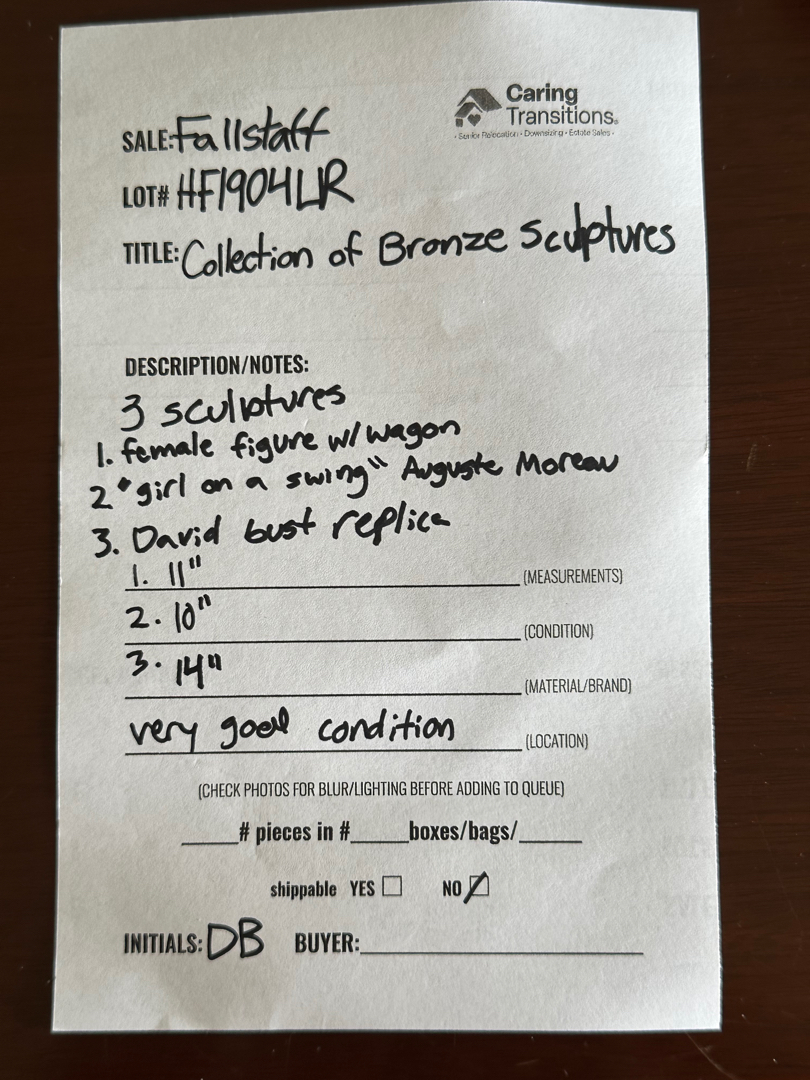 Caring
Transitions®
• Senior Relocation • Downsizing • Estate Sales •
SALE: Fallstaff
LOT# HF1904LR
TITLE: Collection of Bronze Sculptures
DESCRIPTION/NOTES:
3 sculptures
1. female figure w/wagon
2 "girl on a swing" Auguste Moreau
3. David bust replica
1. 11" (MEASUREMENTS)
2. 10" (CONDITION)
3. 14" (MATERIAL/BRAND)
very good condition (LOCATION)
(CHECK PHOTOS FOR BLUR/LIGHTING BEFORE ADDING TO QUEUE)
____# pieces in #____boxes/bags/____
shippable YES ☐ NO ☑
INITIALS: DB BUYER:____